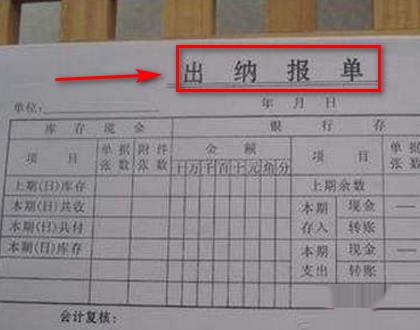 出纳报单
单位: 年 月 日
库存现金 银行存
项目 单据张数 附件张数 金额 项目 单据张数
十万千百十元角分
上期(日)库存 上期余数
本期(日)共收 本期存入 现金 —
本期(日)共付 转账
本期(日)库存 本期支出 现金 —
转账
会计复核: